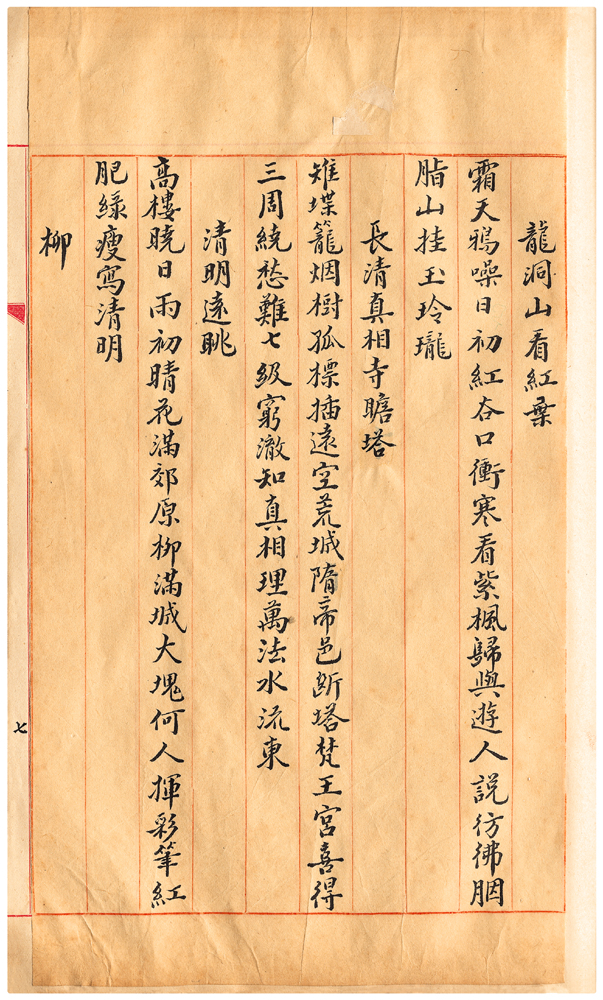 龍洞山看紅葉
霜天鴉噪日初紅谷口衝寒看紫楓歸與遊人說彷彿胭
脂山挂玉玲瓏
長清真相寺瞻塔
雉堞籠烟樹孤標插遠空荒城隋帝邑斷塔梵王宮喜得
三周繞愁難七級窮澈知真相理萬法水流東
清明遠眺
高樓曉日雨初晴花滿郊原柳滿城大塊何人揮彩筆紅
肥綠瘦寫清明
柳
七